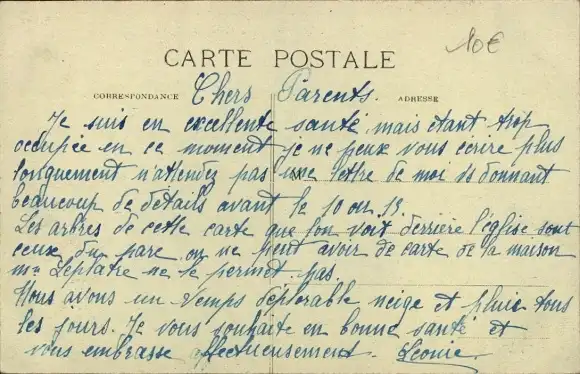 10€
CARTE POSTALE
CORRESPONDANCE
ADRESSE
Chers Parents.
Je suis en excellente santé mais étant trop
occupée en ce moment je ne peux vous écrire plus
longuement n'attendez pas une lettre de moi vs donnant
beaucoup de détails avant le 10 ou 13.
Les arbres de cette carte que l'on voit derrière l'église sont
ceux du parc on ne peut avoir de carte de la maison
Mme Leplatre ne le permet pas.
Nous avons un temps déplorable neige et pluie tous
les jours. Je vous souhaite en bonne santé et
vous embrasse affectueusement. Léonie